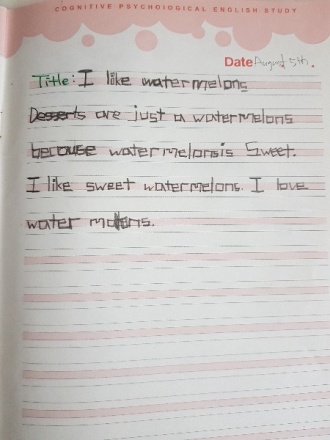 COGNITIVE PSYCHOLOGICAL ENGLISH STUDY
Date August 5th.
Title: I like watermelons
Desserts are just a watermelons
because watermelonsis Sweet.
I like sweet watermelons. I love
water melons.